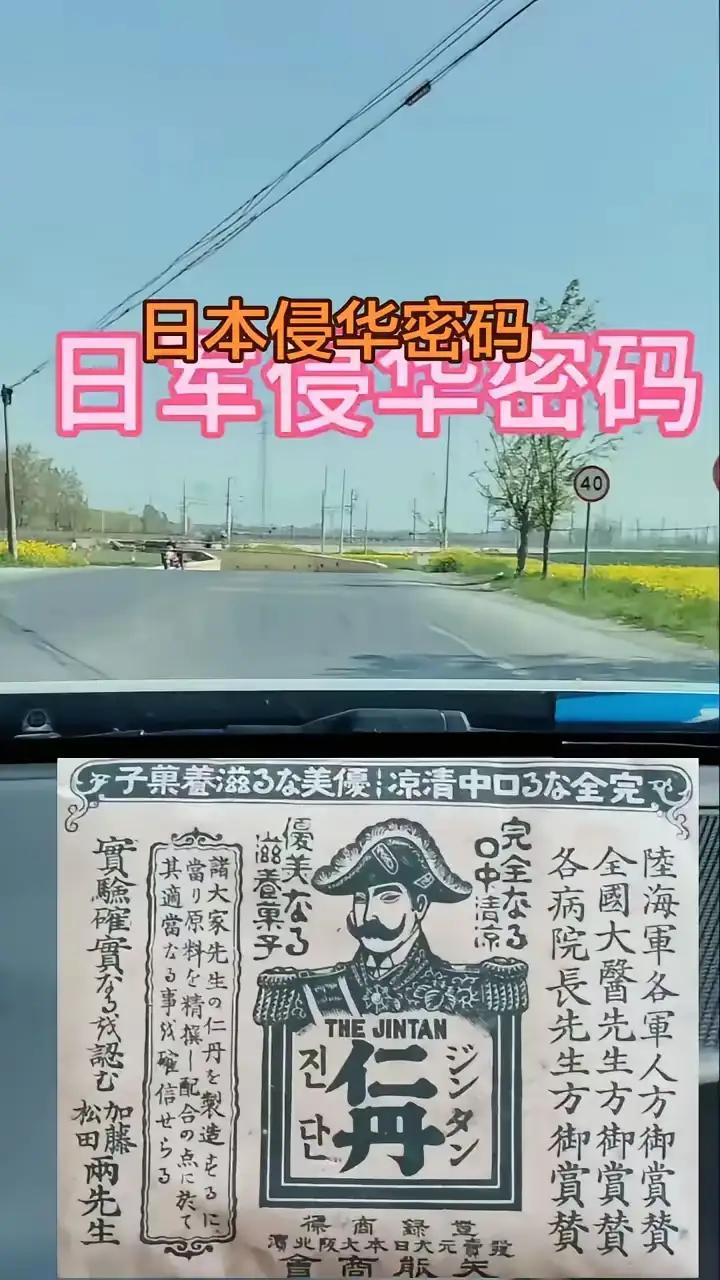 日本侵华密码
日军侵华密码
40
完全なる口中清涼優美なる滋養菓子
陸海軍各軍人方御賞賛
全國大醫先生方御賞賛
各病院長先生方御賞賛
完全なる
口中清涼
優美なる
滋養菓子
THE JINTAN
ジンタン
仁丹
진단
諸大家先生の仁丹を製造せるに
當り原料を精撰し配合の点に於て
其適當なる事を確信せらる
實驗確實なるを認む
加藤
松田
兩先生
登録商標
發賣元大日本大阪北濱
商會